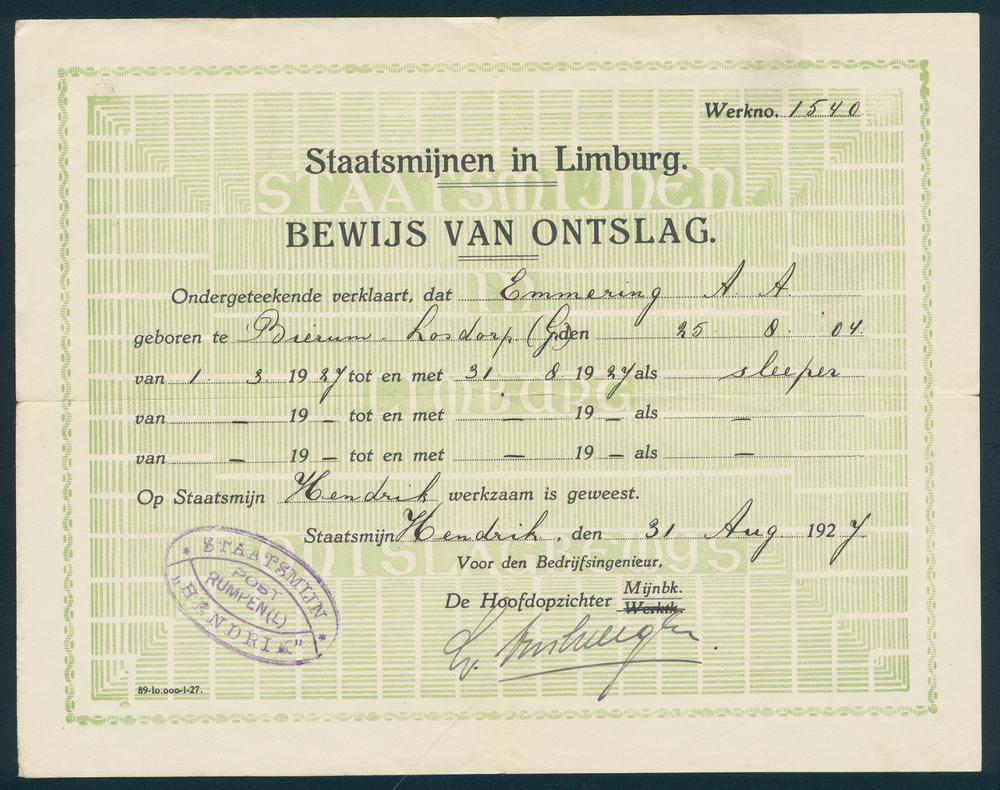 Werkno. 1540
Staatsmijnen in Limburg.
STAATSMIJNEN
BEWIJS VAN ONTSLAG.
IN
Ondergeteekende verklaart, dat Emmering A A
geboren te Bierum-Losdorp (G.) den 25 8. 04.
van 1. 3. 1927 tot en met 31. 8. 1927 als sleeper
LIMBURG
van — 19 — tot en met — 19 — als —
van — 19 — tot en met — 19 — als —
Op Staatsmijn Hendrik werkzaam is geweest.
Staatsmijn Hendrik, den 31 Aug 1927.
ONTSLAGBEWIJS
Voor den Bedrijfsingenieur,
De Hoofdopzichter Mijnbk.
Werktk.
* STAATSMIJN *
POST
RUMPEN (L)
„HENDRIK"
89-10.000-1-27.